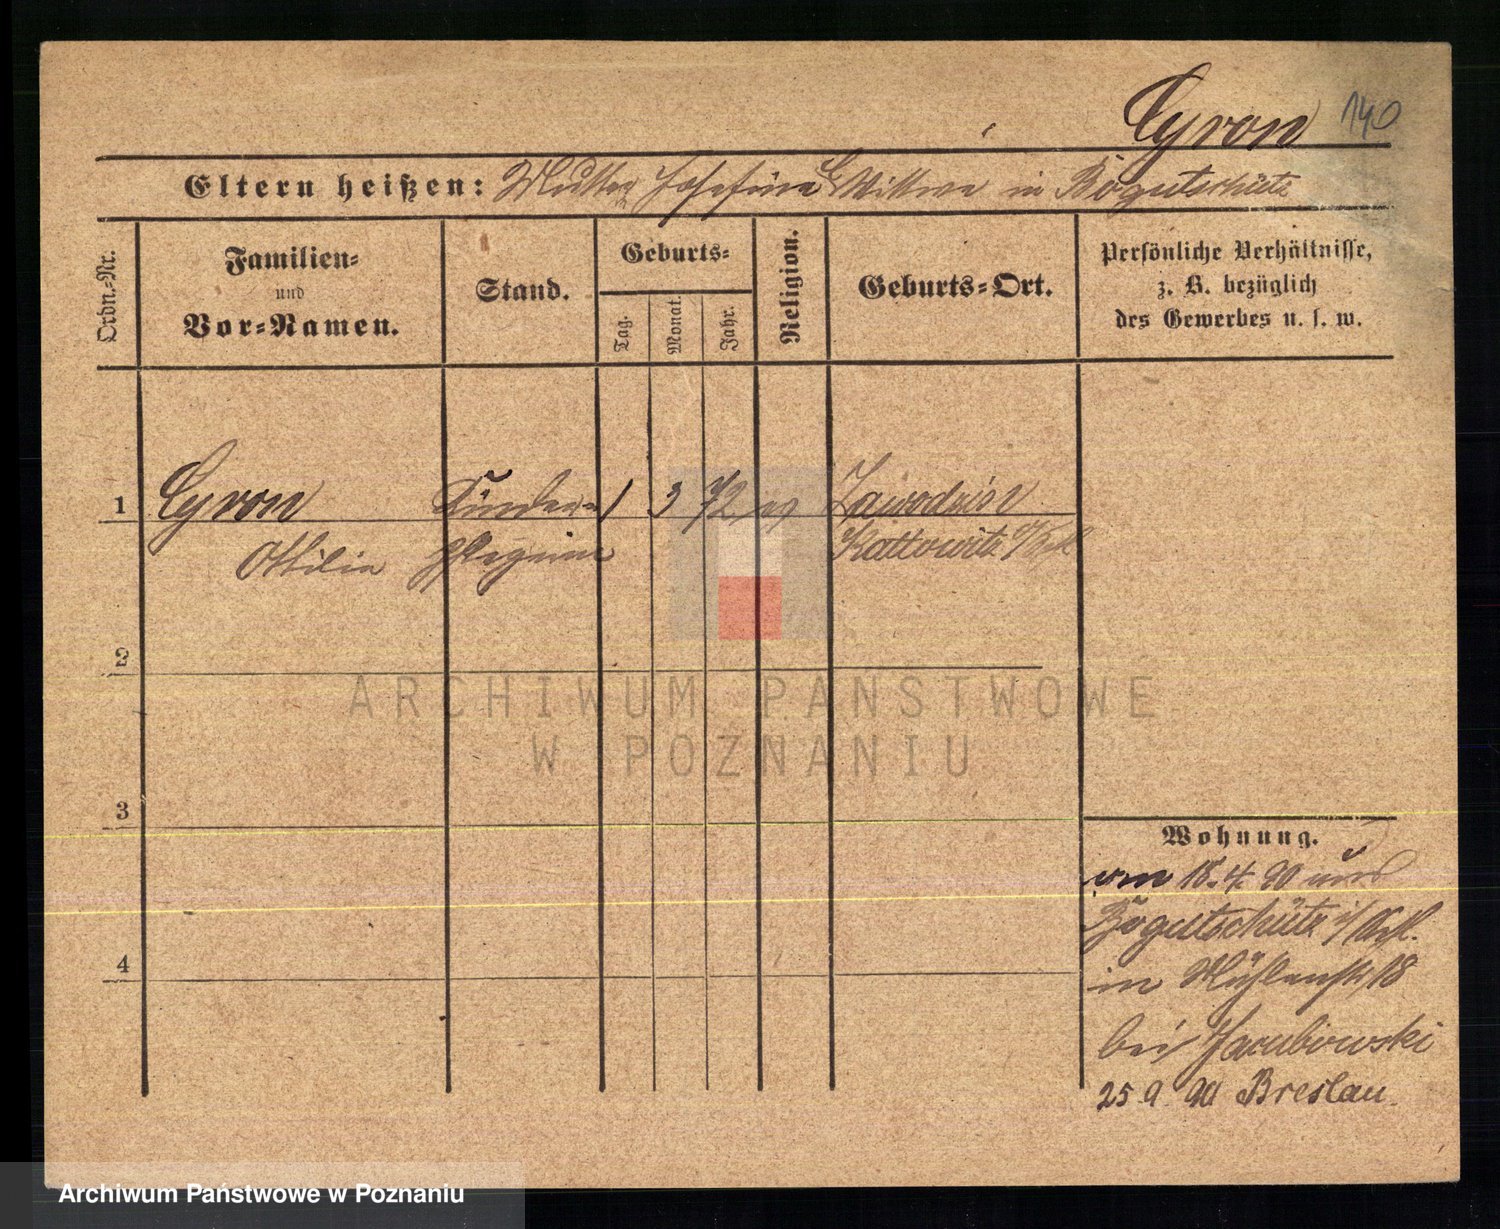 Cyron 140
Eltern heißen: Mutter Josefina Wittwe in Bogutschütz
Ordn.-Nr.
Familien-
und
Vor-Namen.
Stand.
Geburts-
Tag.
Monat.
Jahr.
Religion.
Geburts-Ort.
Persönliche Verhältnisse,
z. B. bezüglich
des Gewerbes u. s. w.
1 Cyron Kinder- 1 3 72 Zawodzie
Ottilie Pflegerin Kattowitz
2
ARCHIWUM PAŃSTWOWE
W POZNANIU
3
4
Wohnung.
von 18.4.90 aus
Bogutschütz
in Mühlenstr. 18
bei Jacubowski
25.9.90 Breslau.
Archiwum Państwowe w Poznaniu